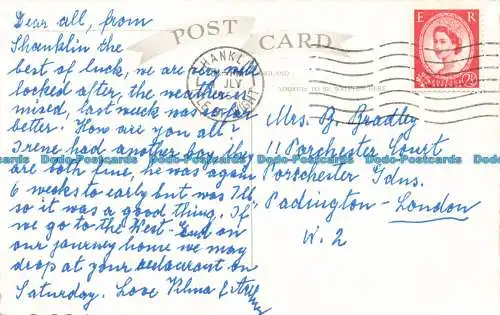 Dear all, from
Shanklin the
best of luck, we are very well
looked after, the weather is
mixed, last week was so far
better. How are you all?
Irene had another boy, they
are both fine, he was again
6 weeks to early but was 7lb
so it was a good thing. If
we go to the West-End on
our journey home we may
drop at your restaurant on
Saturday. Love Vilma &
POST CARD
SHANKLIN
JLY
ISLE OF WIGHT
ENGLAND
ADDRESS TO BE WRITTEN HERE
E R
Mrs. B. Bradley
11 Porchester Court
Porchester Gdns.
Paddington - London
W. 2
Dodo-Postcards Dodo-Postcards Dodo-Postcards Dodo-Postcards Dodo-Postcards